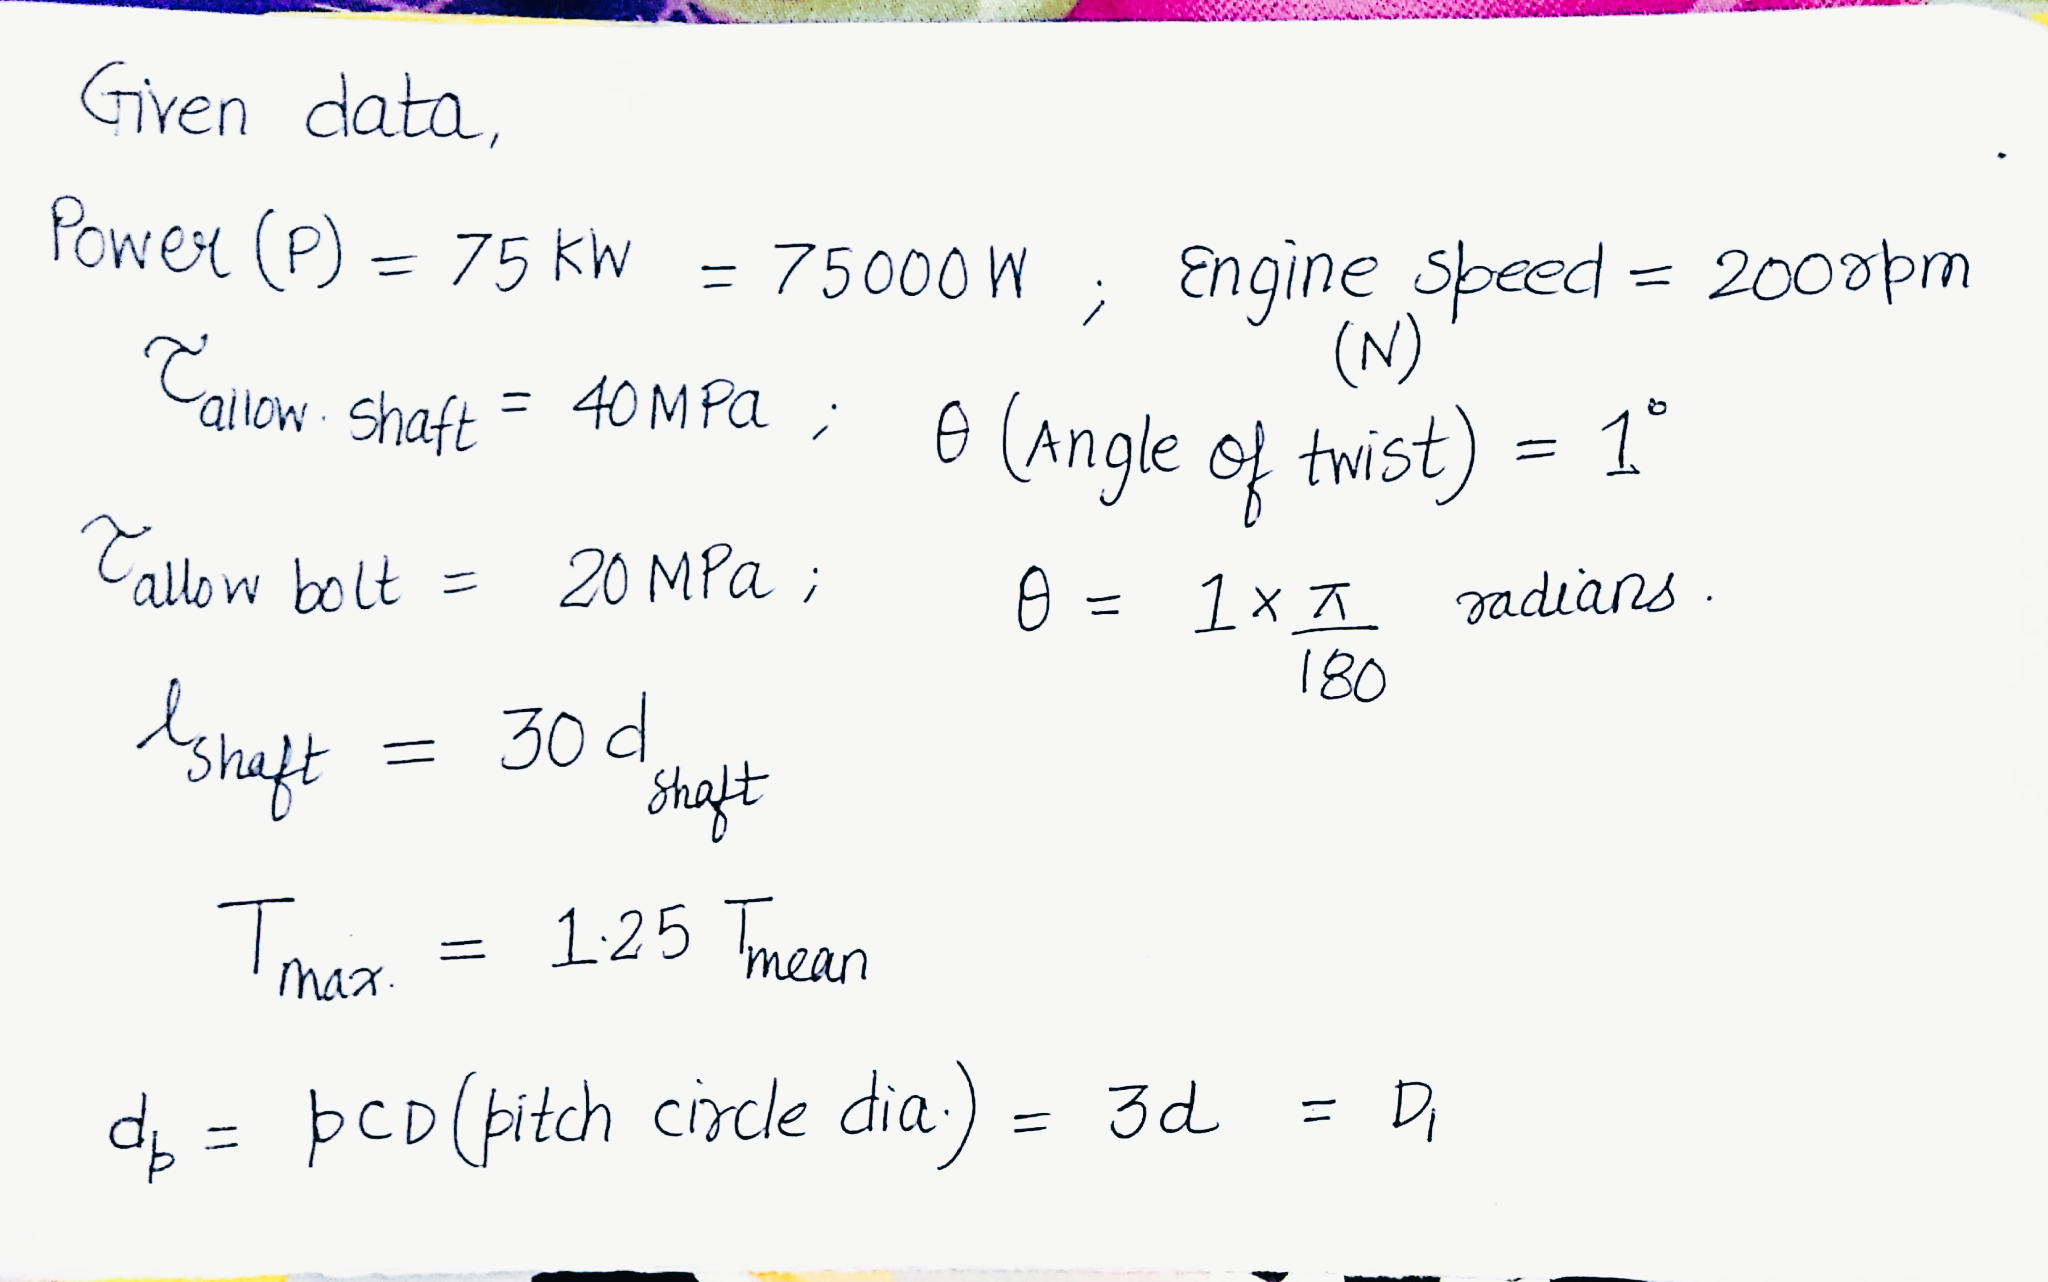 Given data,
Power (P) = 75 KW = 75000 W ; Engine speed = 200 rpm
(N)
τallow. shaft = 40 MPa ; θ (Angle of twist) = 1°
τallow bolt = 20 MPa ; θ = 1 × π/180 radians.
lshaft = 30 dshaft
Tmax. = 1.25 Tmean
dp = pCD (pitch circle dia.) = 3d = D1